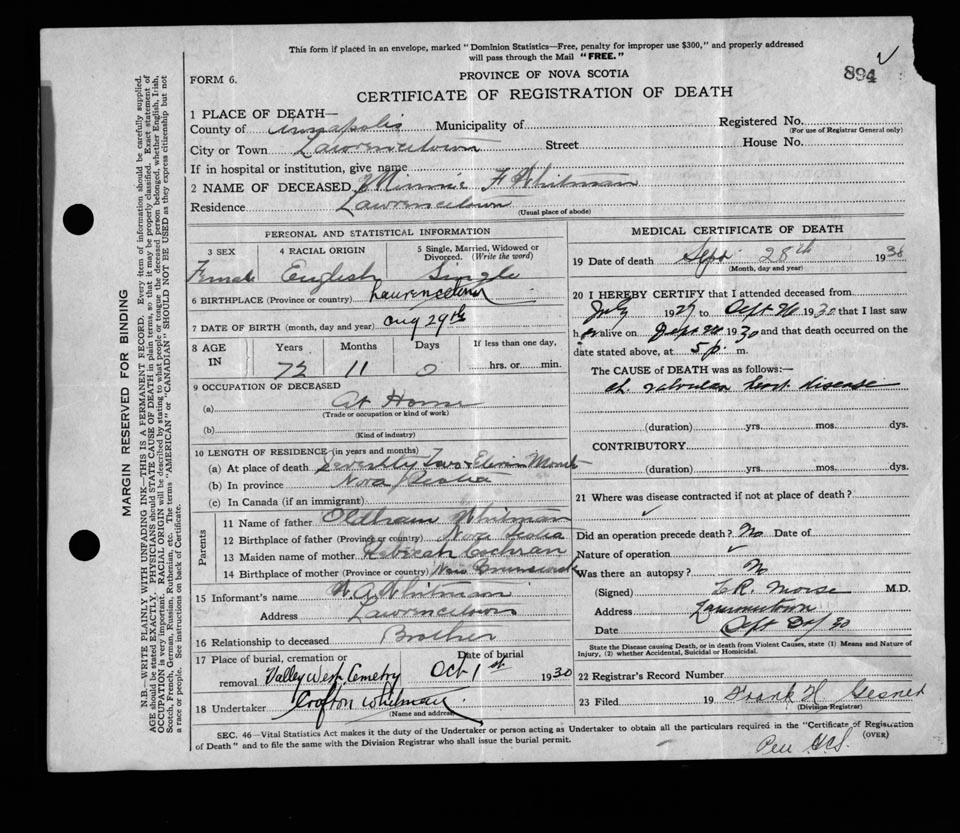 This form if placed in an envelope, marked "Dominion Statistics—Free, penalty for improper use $300," and properly addressed
will pass through the Mail "FREE."
894
FORM 6.
PROVINCE OF NOVA SCOTIA
CERTIFICATE OF REGISTRATION OF DEATH
1 PLACE OF DEATH—
County of Annapolis Municipality of Registered No.
(For use of Registrar General only)
City or Town Lawrencetown Street House No.
If in hospital or institution, give name
2 NAME OF DECEASED Minnie F Whitman
Residence Lawrencetown
(Usual place of abode)
PERSONAL AND STATISTICAL INFORMATION
3 SEX 4 RACIAL ORIGIN 5 Single, Married, Widowed or
Divorced. (Write the word)
Female English Single
6 BIRTHPLACE (Province or country) Lawrencetown
7 DATE OF BIRTH (month, day and year) Aug 29th
8 AGE IN Years Months Days If less than one day,
72 11 0 hrs. or min.
9 OCCUPATION OF DECEASED
(a) At Home
(Trade or occupation or kind of work)
(b)
(Kind of industry)
10 LENGTH OF RESIDENCE (in years and months)
(a) At place of death Seventy Two Eleven Month
(b) In province Nova Scotia
(c) In Canada (if an immigrant)
Parents
11 Name of father Oldham Whitman
12 Birthplace of father (Province or country) Nova Scotia
13 Maiden name of mother Rebecah Cochran
14 Birthplace of mother (Province or country) New Brunswick
15 Informant's name W. A. Whitman
Address Lawrencetown
16 Relationship to deceased Brother
17 Place of burial, cremation or Date of burial
removal Valley West Cemetry Oct 1st 1930
18 Undertaker Crofton Whitman
(Name and address)
MEDICAL CERTIFICATE OF DEATH
19 Date of death Sept 28th 1930
(Month, day and year)
20 I HEREBY CERTIFY that I attended deceased from
July 1927 to Sept 1930 that I last saw
her alive on Sept 1930 and that death occurred on the
date stated above, at 5 p. m.
The CAUSE of DEATH was as follows:—
Ch. valvular heart disease
(duration) yrs. mos. dys.
CONTRIBUTORY
(duration) yrs. mos. dys.
21 Where was disease contracted if not at place of death?
Did an operation precede death? No Date of
Nature of operation
Was there an autopsy? No
(Signed) L.R. Morse M.D.
Address Lawrencetown
Date Sept 30
State the Disease causing Death, or in death from Violent Causes, state (1) Means and Nature of
Injury, (2) whether Accidental, Suicidal or Homicidal.
22 Registrar's Record Number
23 Filed 19 Frank H Gesner
(Division Registrar)
SEC. 46—Vital Statistics Act makes it the duty of the Undertaker or person acting as Undertaker to obtain all the particulars required in the "Certificate of Registration
of Death" and to file the same with the Division Registrar who shall issue the burial permit. (OVER)
Per
MARGIN RESERVED FOR BINDING
N.B.—WRITE PLAINLY WITH UNFADING INK—THIS IS A PERMANENT RECORD. Every item of information should be carefully supplied.
AGE should be stated EXACTLY. PHYSICIANS should STATE CAUSE OF DEATH in plain terms, so that it may be properly classified. Exact statement of
OCCUPATION is very important. RACIAL ORIGIN will be described by stating to what people or tongue the deceased person belonged, whether English, Irish,
Scotch, French, German, Russian, Ruthenian, etc. The terms "AMERICAN" or "CANADIAN" SHOULD NOT BE USED as they express citizenship but not
a race or people. See instructions on back of Certificate.